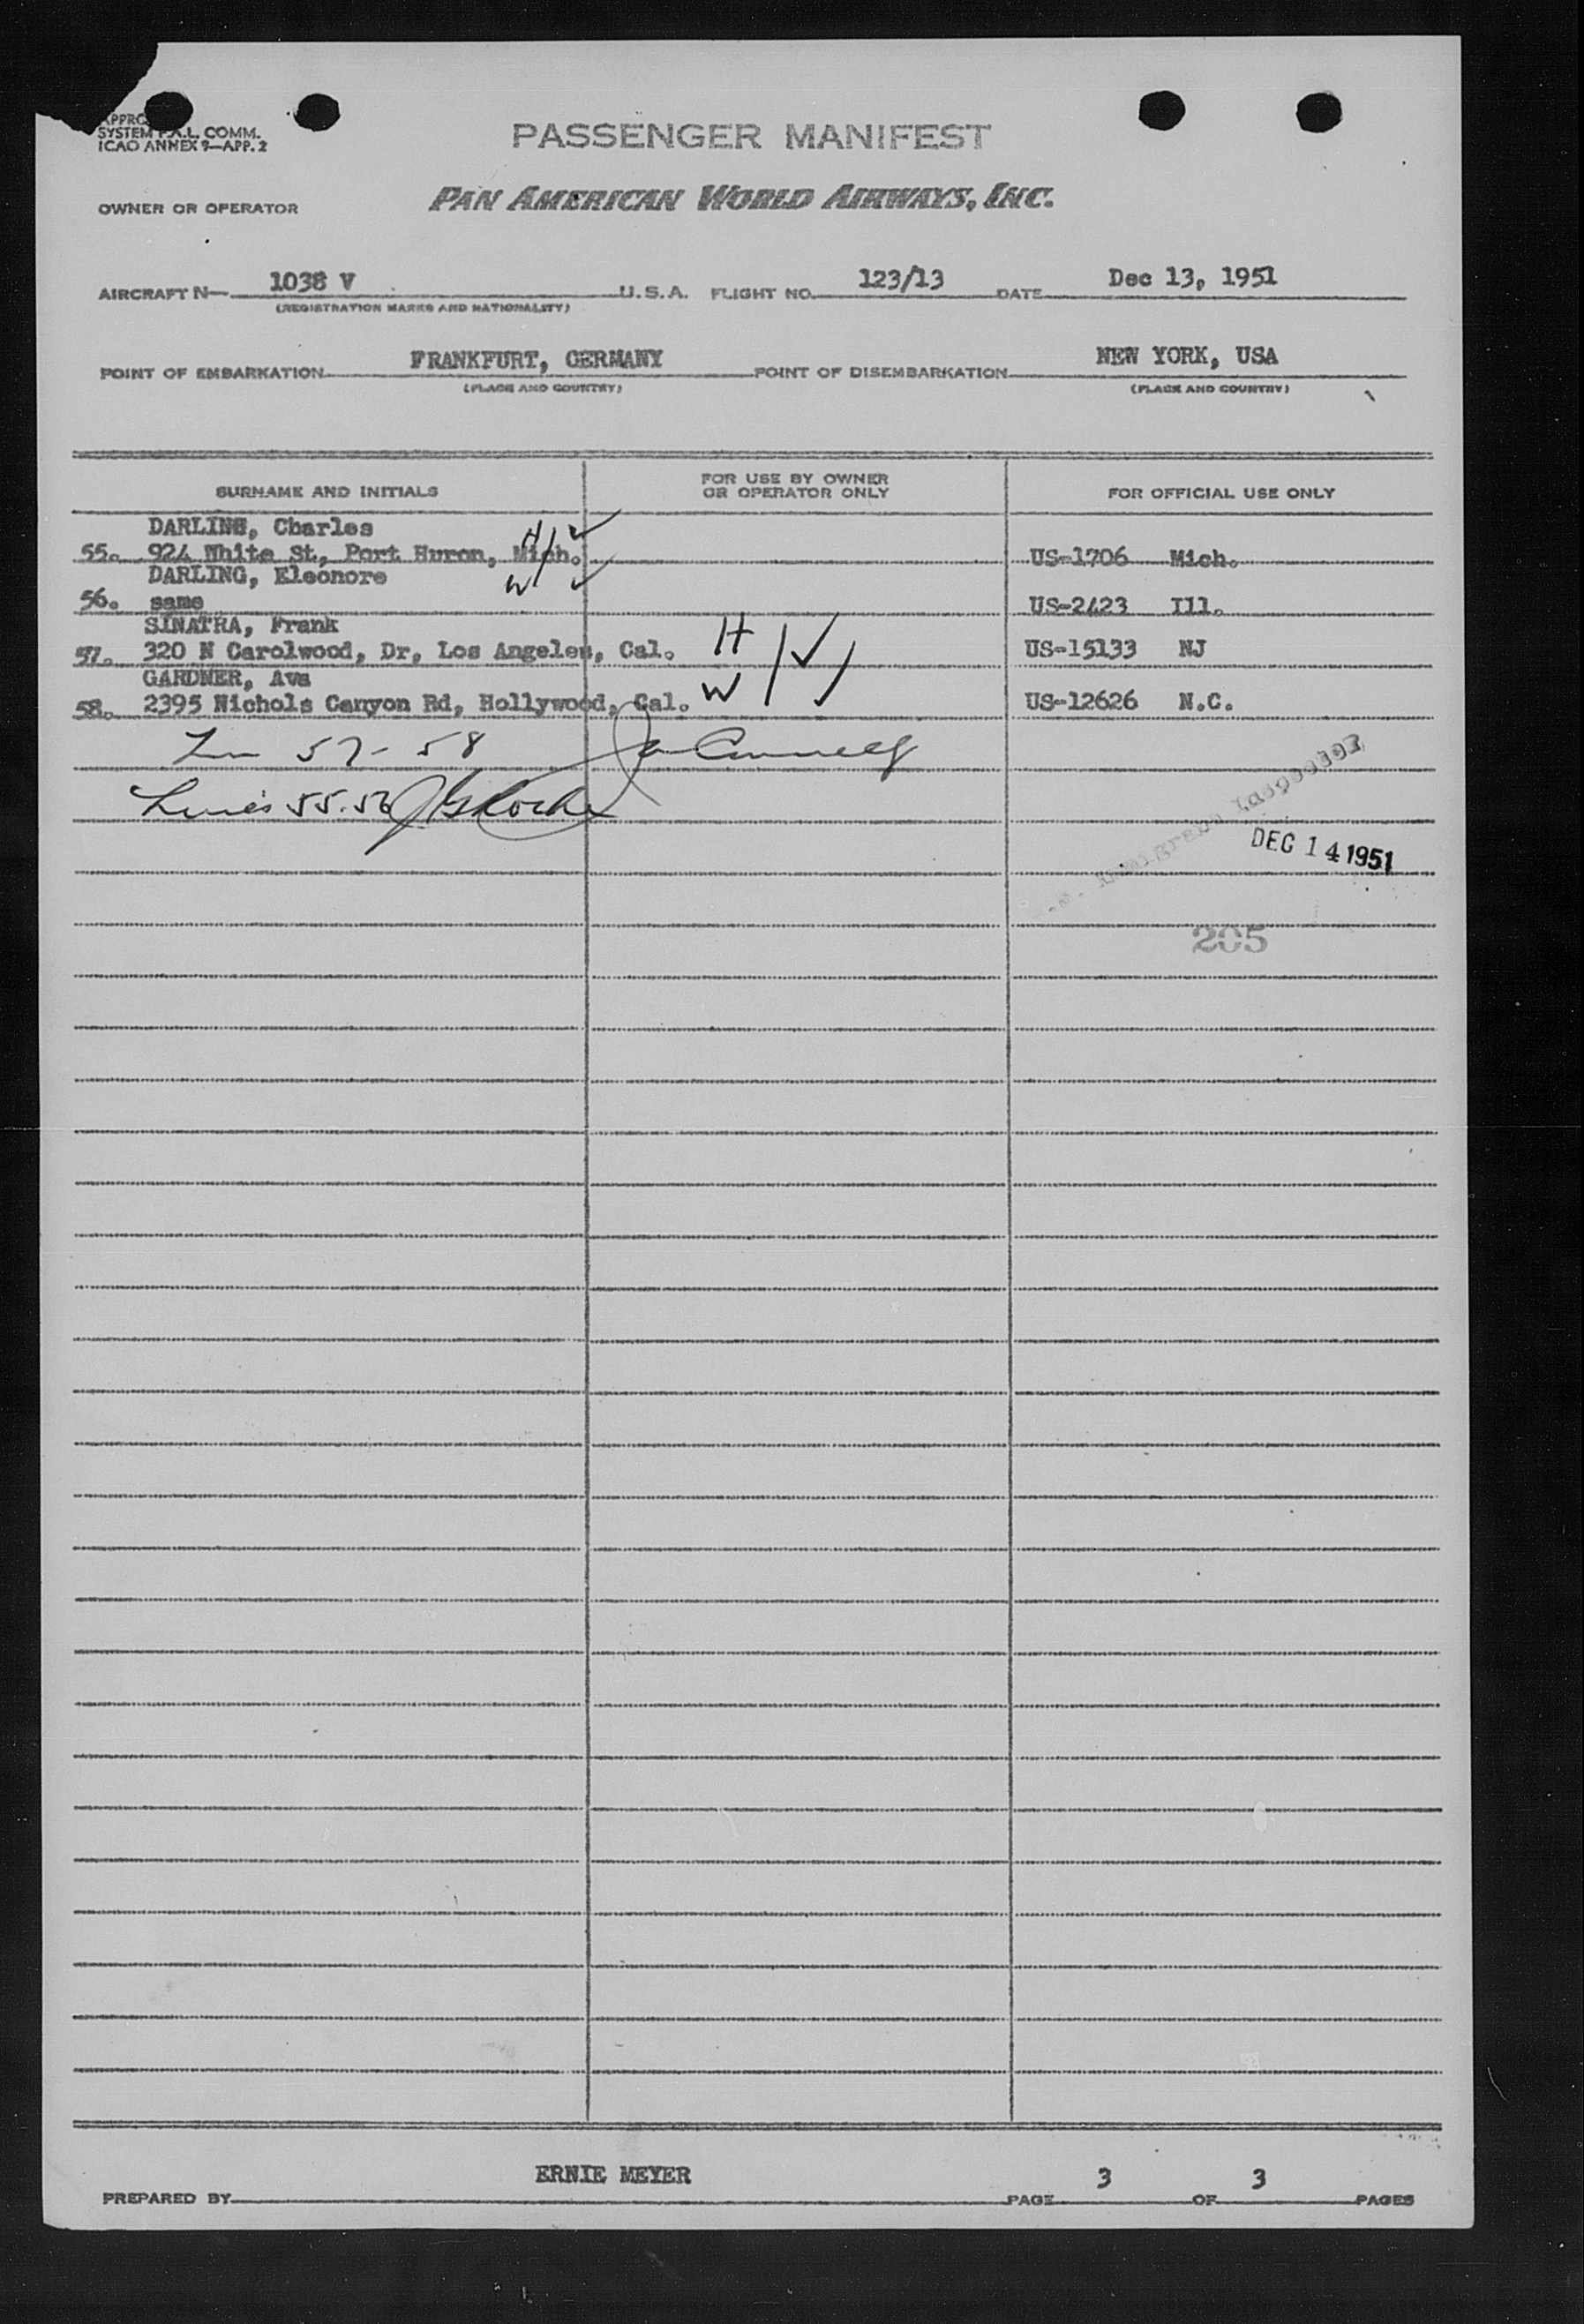 APPRO
SYSTEM F.A.L. COMM.
ICAO ANNEX 9—APP. 2
PASSENGER MANIFEST
OWNER OR OPERATOR PAN AMERICAN WORLD AIRWAYS, INC.
AIRCRAFT N— 1038 V U.S.A. FLIGHT NO. 123/13 DATE Dec 13, 1951
(REGISTRATION MARKS AND NATIONALITY)
POINT OF EMBARKATION FRANKFURT, GERMANY POINT OF DISEMBARKATION NEW YORK, USA
(PLACE AND COUNTRY) (PLACE AND COUNTRY)
SURNAME AND INITIALS FOR USE BY OWNER OR OPERATOR ONLY FOR OFFICIAL USE ONLY
DARLING, Charles H
55. 924 White St, Port Huron, Mich. US-1706 Mich.
DARLING, Eleonore W
56. same US-2423 Ill.
SINATRA, Frank
57. 320 N Carolwood, Dr, Los Angeles, Cal. H US-15133 NJ
GARDNER, Ava
58. 2395 Nichols Canyon Rd, Hollywood, Cal. W US-12626 N.C.
57-58
55.56
Immigrant Inspector
DEC 14 1951
205
PREPARED BY ERNIE MEYER PAGE 3 OF 3 PAGES